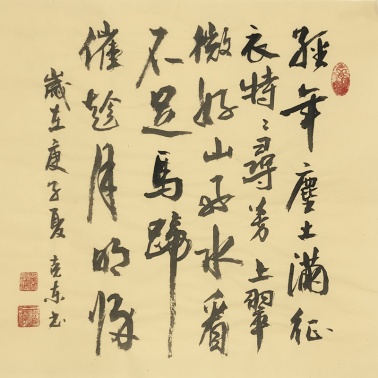 經年塵土滿征
衣特〻尋芳上翠
微好山好水看
不足馬蹄
催趁月明歸
歲在庚子夏克东书